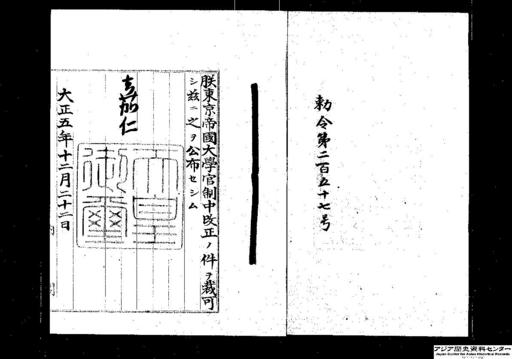 勅令第二百五十七号
朕東京帝國大學官制中改正ノ件ヲ裁可
シ茲ニ之ヲ公布セシム
嘉仁
天皇
御璽
大正五年十二月二十二日
内閣
アジア歴史資料センター
Japan Center for Asian Historical Records